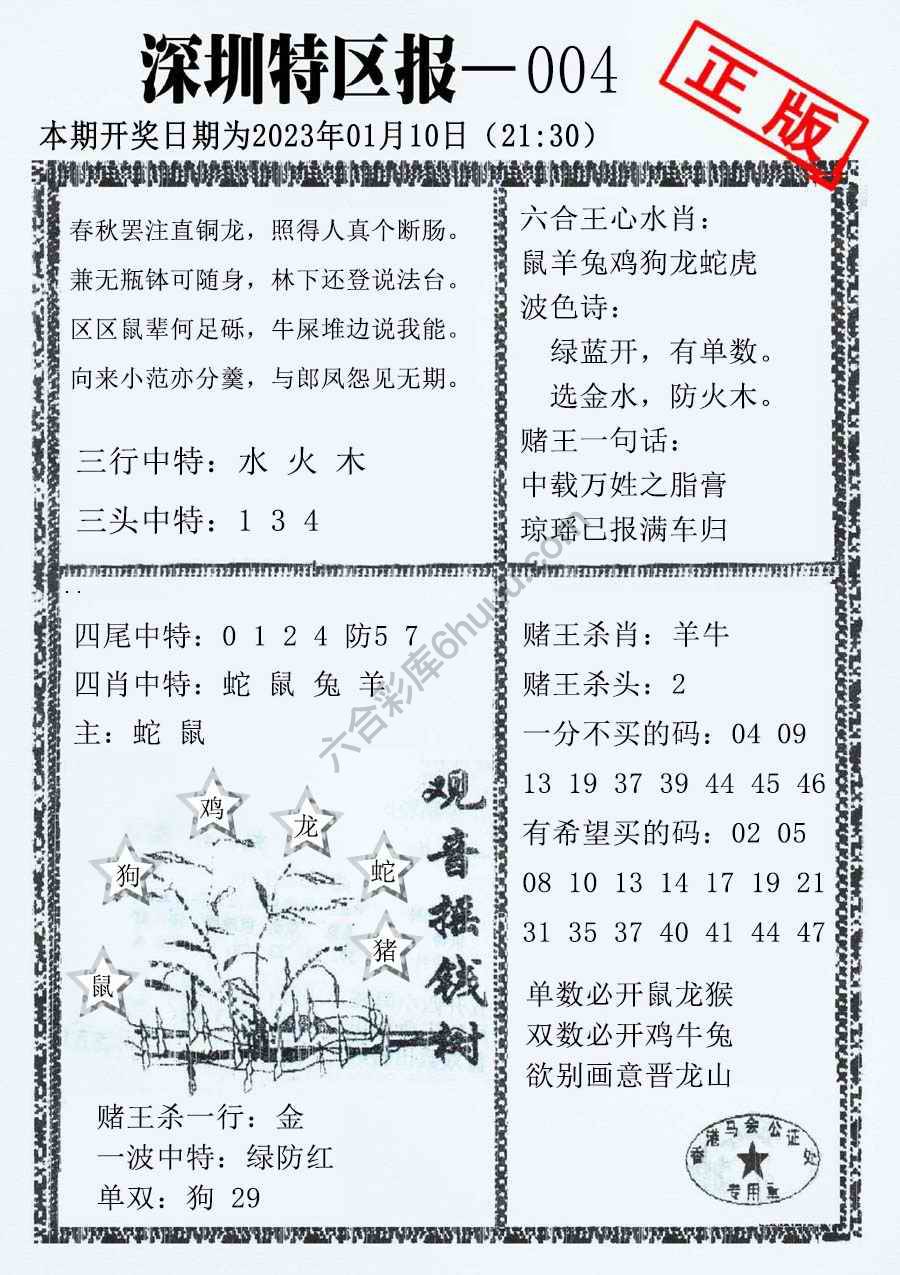 深圳特区报—004
正版
本期开奖日期为2023年01月10日（21:30）
春秋罢注直铜龙，照得人真个断肠。
兼无瓶钵可随身，林下还登说法台。
区区鼠辈何足砾，牛屎堆边说我能。
向来小范亦分羹，与郎凤怨见无期。
三行中特：水 火 木
三头中特：1 3 4
六合王心水肖：
鼠羊兔鸡狗龙蛇虎
波色诗：
绿蓝开，有单数。
选金水，防火木。
赌王一句话：
中载万姓之脂膏
琼瑶已报满车归
..
四尾中特：0 1 2 4 防5 7
四肖中特：蛇 鼠 兔 羊
主：蛇 鼠
鸡
龙
狗
蛇
猪
鼠
观音摇钱树
赌王杀一行：金
一波中特：绿防红
单双：狗 29
赌王杀肖：羊牛
赌王杀头：2
一分不买的码：04 09
13 19 37 39 44 45 46
有希望买的码：02 05
08 10 13 14 17 19 21
31 35 37 40 41 44 47
单数必开鼠龙猴
双数必开鸡牛兔
欲别画意晋龙山
香港马会公证处
专用章
六合彩库6huku.com